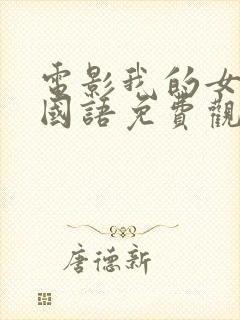 電影我的女
國語免費觀
唐德新